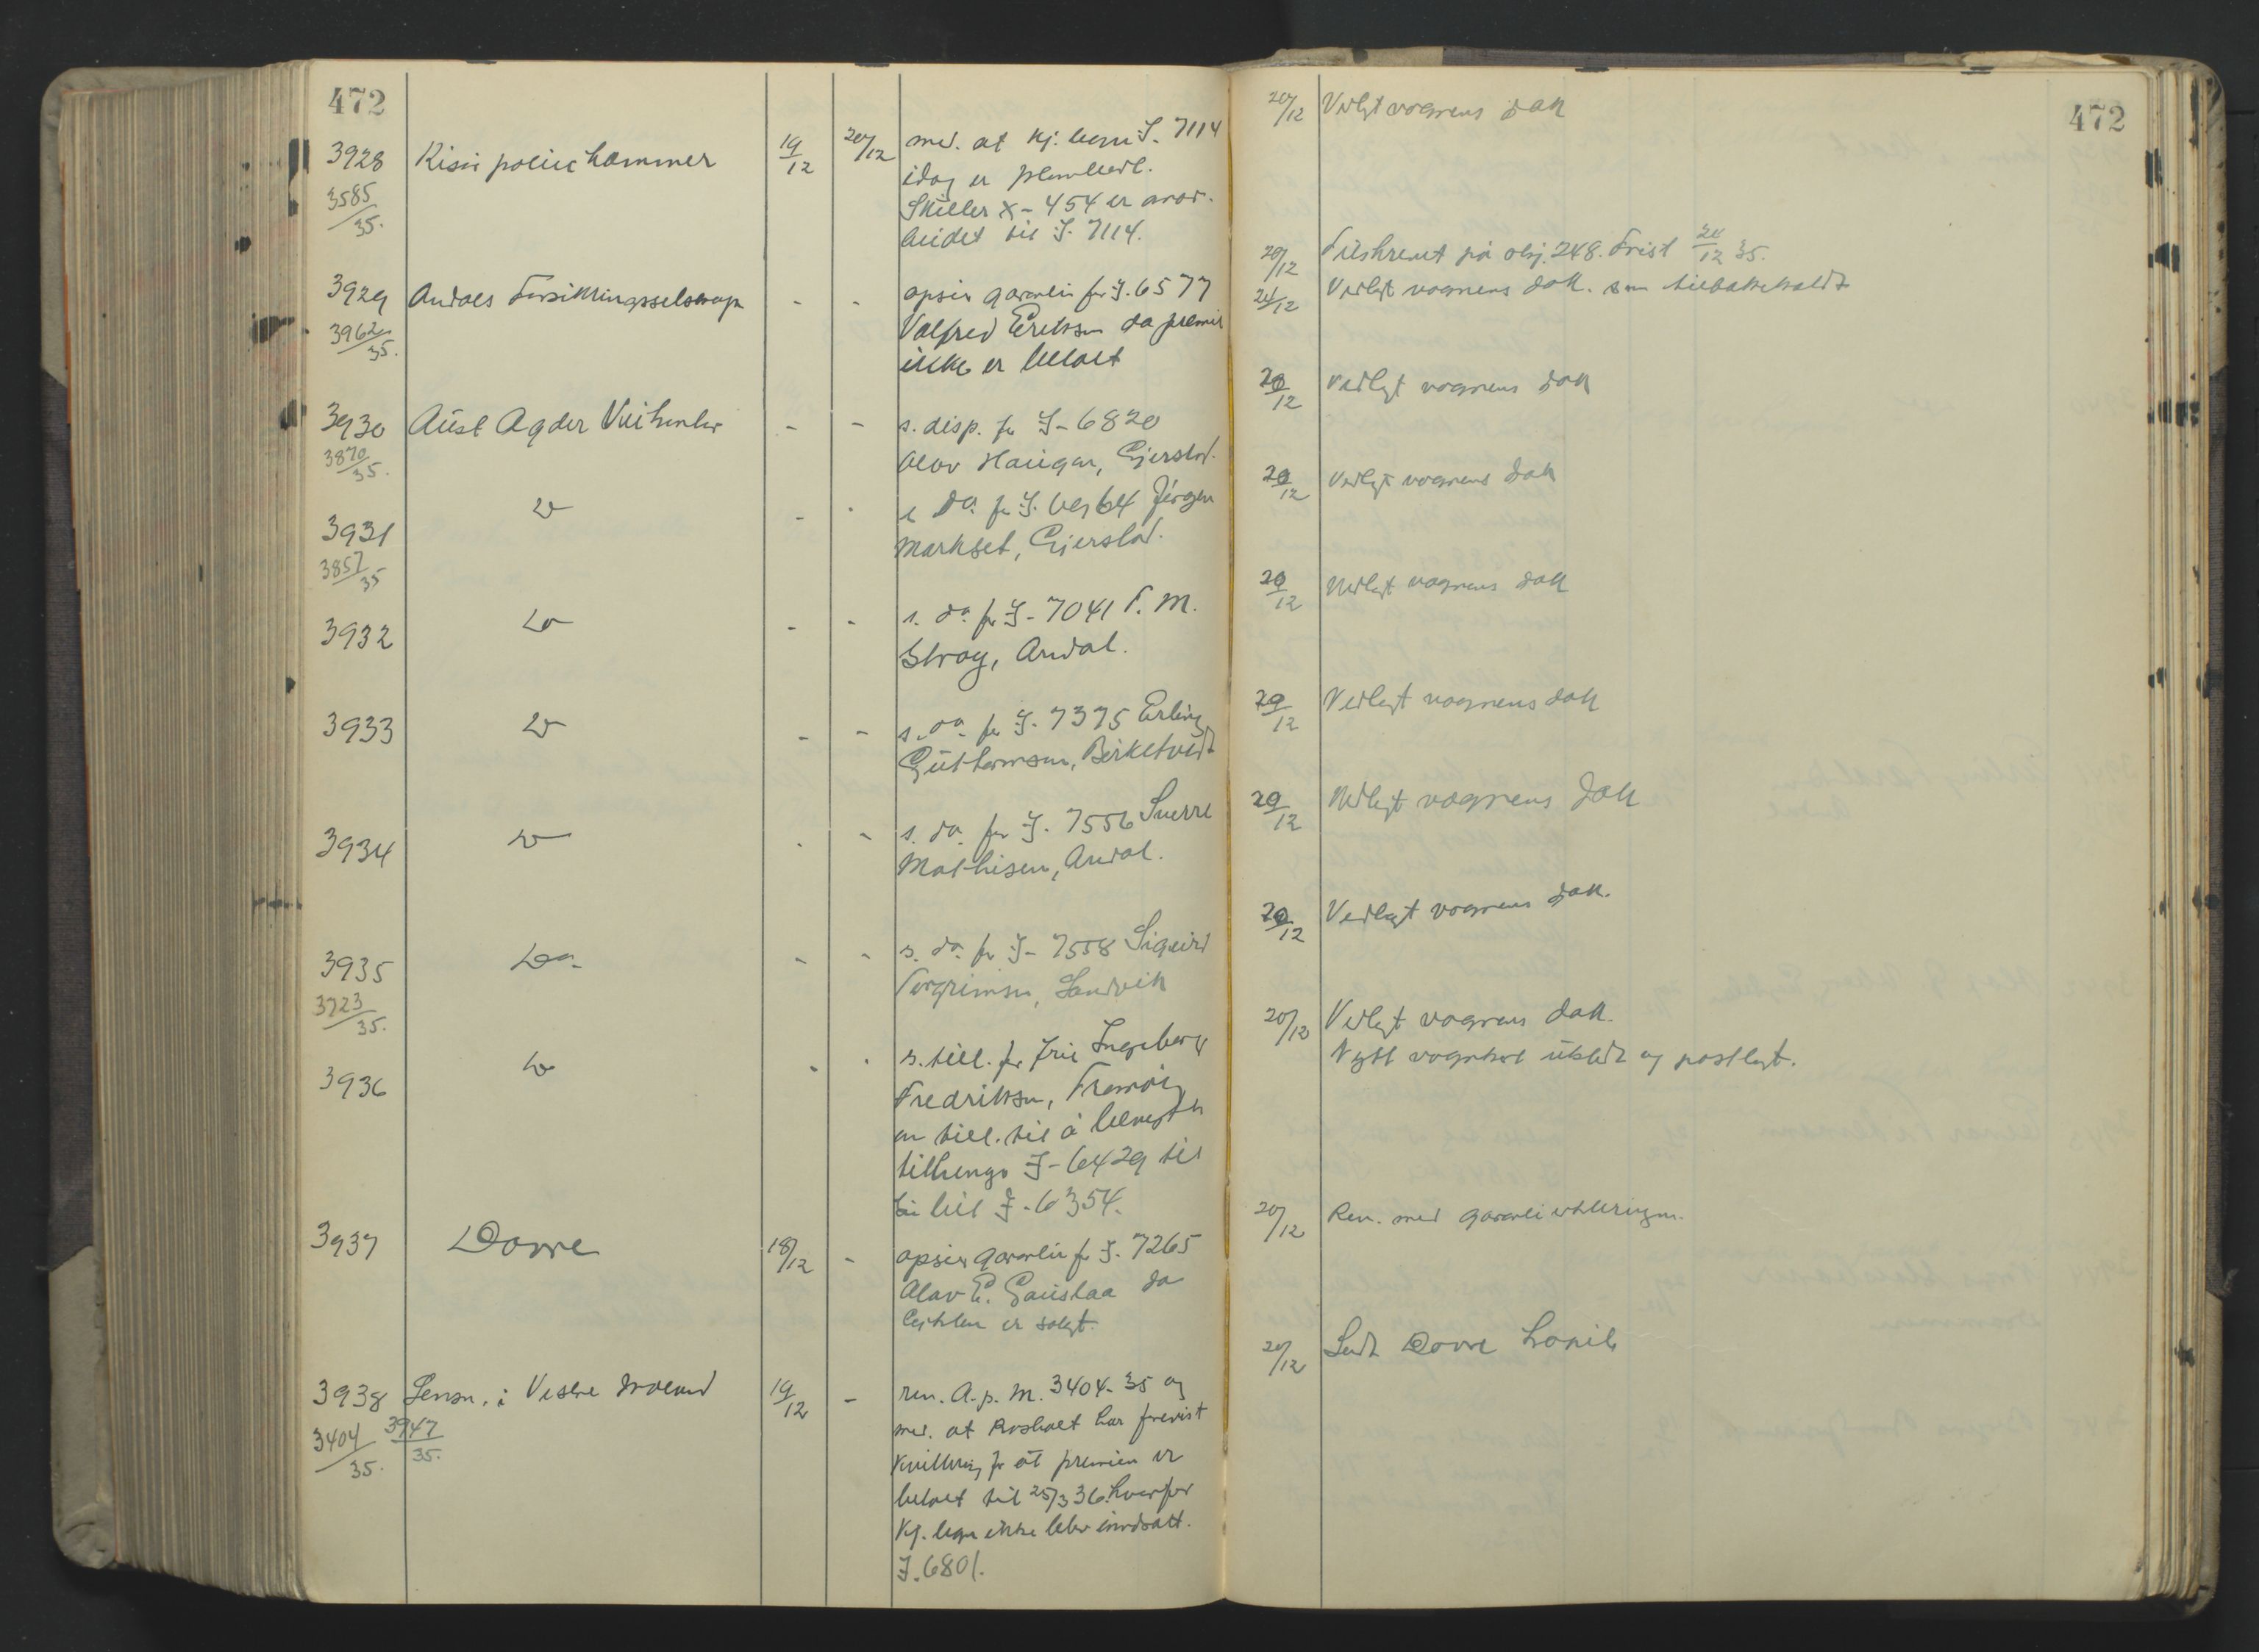 472
3928 Risør politikammer 19/12 20/12 med. at kj. legn I. 7114
3585/35. idag er plombert.
Skilter X-454 er avar-
beidet til I. 7114.
3929 Ardals Forsikringsselskap - - opsier garantien for I. 6577
3962/35. Valfred Eriksen da premie
ikke er betalt
3930 Aust Agder Veikontor - - s. disp. for I-6820
3870/35. Olav Haugen, Gjerstad.
3931 Do - - s. do. for I. 6964 Jørgen
3857/35 Markset, Gjerstad.
3932 Do - - s. do. for I-7041 T. M.
Stray, Arndal.
3933 Do - - s. do. for I. 7375 Erling
Guttormsen, Birketveit
3934 Do - - s. do. for I. 7556 Sverre
Mathisen, Arndal.
3935 Do. - - s. do. for I-7558 Sigurd
3723/35. Torgrimsen, Sandvik
3936 Do - - s. till. for frk. Ingeborg
Fredriksen, Tromøy
om till. til å benytte
tilhenger I-6429 til
sin bil I-6354.
3937 Dovre 18/12 - opsier garantien for I. 7265
Olav E. Gauslaa da
er solgt.
3938 Lensm. i Vestre Moland 19/12 - ren. A.p.M. 3404-35 og
3404/35. 3947/35. med. at Rosholt har forevist
kvittering for at premien er
betalt til 25/3 36. hvorfor
kj. legn ikke blev inndradt.
I. 6801.
472
20/12 Vedlagt vognens dok
20/12 Tilskrevet på obj. 248. Frist 24/12 35.
24/12 Vedlagt vognens dok. som tilbakeholdt
20/12 Vedlagt vognens dok
20/12 Vedlagt vognens dok
20/12 Vedlagt vognens dok
20/12 Vedlagt vognens dok
20/12 Vedlagt vognens dok
20/12 Vedlagt vognens dok.
20/12 Vedlagt vognens dok.
Nytt vognkort utstedt og postlagt.
20/12 Ren. med garantierklæringen.
20/12 Sendt Dovre kopi